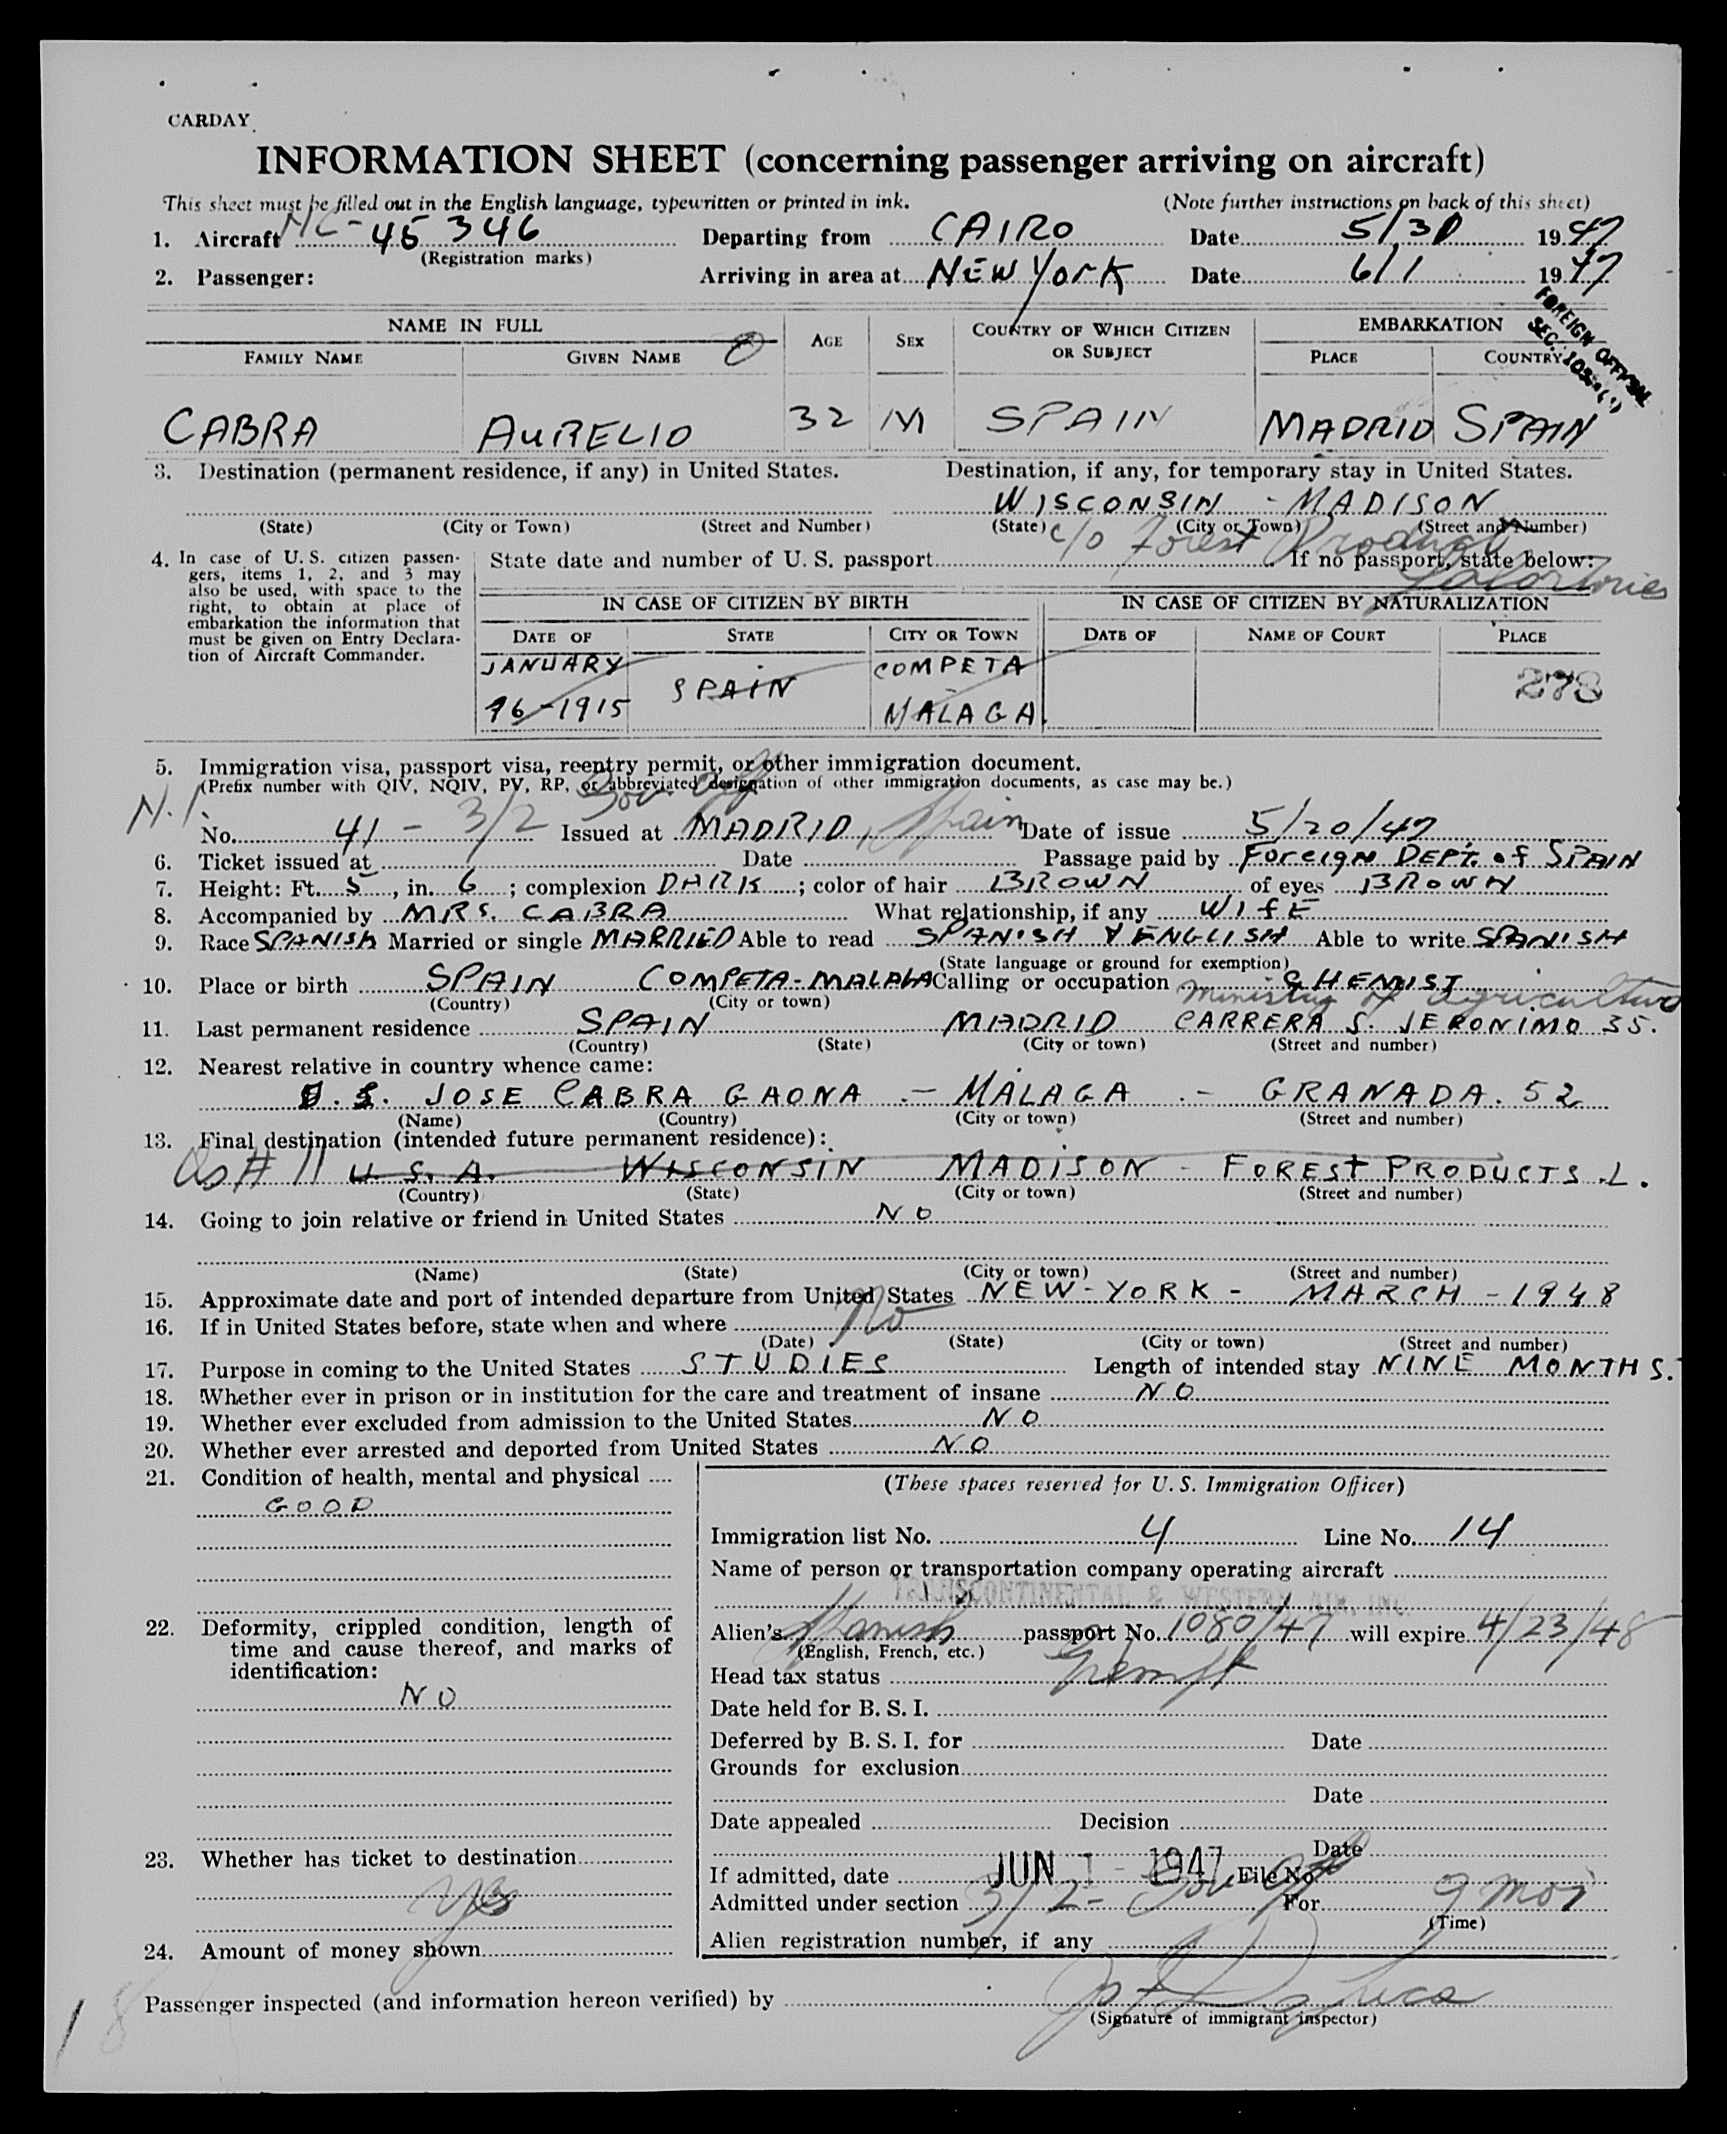 CARDAY
INFORMATION SHEET (concerning passenger arriving on aircraft)
This sheet must be filled out in the English language, typewritten or printed in ink. (Note further instructions on back of this sheet)
1. Aircraft NC-45346 Departing from CAIRO Date 5/30 1947
(Registration marks)
2. Passenger: Arriving in area at NEW YORK Date 6/1 1947
FOREIGN OFFICIAL
SEC.
NAME IN FULL AGE SEX COUNTRY OF WHICH CITIZEN OR SUBJECT EMBARKATION
FAMILY NAME GIVEN NAME PLACE COUNTRY
CABRA AURELIO 32 M SPAIN MADRID SPAIN
3. Destination (permanent residence, if any) in United States. Destination, if any, for temporary stay in United States.
WISCONSIN - MADISON
(State) (City or Town) (Street and Number) (State) (City or Town) (Street and Number)
c/o Forest Products Laboratories
4. In case of U. S. citizen passengers, items 1, 2, and 3 may also be used, with space to the right, to obtain at place of embarkation the information that must be given on Entry Declaration of Aircraft Commander.
State date and number of U. S. passport If no passport, state below:
IN CASE OF CITIZEN BY BIRTH IN CASE OF CITIZEN BY NATURALIZATION
DATE OF STATE CITY OR TOWN DATE OF NAME OF COURT PLACE
JANUARY SPAIN COMPETA
16-1915 MALAGA. 273
5. Immigration visa, passport visa, reentry permit, or other immigration document.
(Prefix number with QIV, NQIV, PV, RP, or abbreviated designation of other immigration documents, as case may be.)
No. 41 - 3/2 Issued at MADRID, Spain Date of issue 5/20/47
6. Ticket issued at Date Passage paid by Foreign DEPT. of SPAIN
7. Height: Ft. 5, in. 6; complexion DARK; color of hair BROWN of eyes BROWN
8. Accompanied by MRS. CABRA What relationship, if any WIFE
9. Race SPANISH Married or single MARRIED Able to read SPANISH Y ENGLISH Able to write SPANISH
(State language or ground for exemption)
10. Place or birth SPAIN COMPETA-MALAGA Calling or occupation CHEMIST
(Country) (City or town) Ministry of Agriculture
11. Last permanent residence SPAIN MADRID CARRERA S. JERONIMO 35.
(Country) (State) (City or town) (Street and number)
12. Nearest relative in country whence came:
JOSE CABRA GAONA - MALAGA - GRANADA. 52
(Name) (Country) (City or town) (Street and number)
13. Final destination (intended future permanent residence):
As # 11 U. S. A. WISCONSIN MADISON - FOREST PRODUCTS .L.
(Country) (State) (City or town) (Street and number)
14. Going to join relative or friend in United States NO
(Name) (State) (City or town) (Street and number)
15. Approximate date and port of intended departure from United States NEW-YORK - MARCH - 1948
16. If in United States before, state when and where No
(Date) (State) (City or town) (Street and number)
17. Purpose in coming to the United States STUDIES Length of intended stay NINE MONTHS.
18. Whether ever in prison or in institution for the care and treatment of insane NO
19. Whether ever excluded from admission to the United States NO
20. Whether ever arrested and deported from United States NO
21. Condition of health, mental and physical
GOOD
22. Deformity, crippled condition, length of time and cause thereof, and marks of identification:
NO
23. Whether has ticket to destination
Yes
24. Amount of money shown
(These spaces reserved for U. S. Immigration Officer)
Immigration list No. 4 Line No. 14
Name of person or transportation company operating aircraft
TRANSCONTINENTAL & WESTERN AIR, INC.
Alien's Spanish passport No. 1080/47 will expire 4/23/48
(English, French, etc.)
Head tax status Exempt
Date held for B. S. I.
Deferred by B. S. I. for Date
Grounds for exclusion
Date
Date appealed Decision
Date
If admitted, date JUN 1 - 1947 File No.
Admitted under section 3/2 - For 9 mos
(Time)
Alien registration number, if any
Passenger inspected (and information hereon verified) by
(Signature of immigrant inspector)